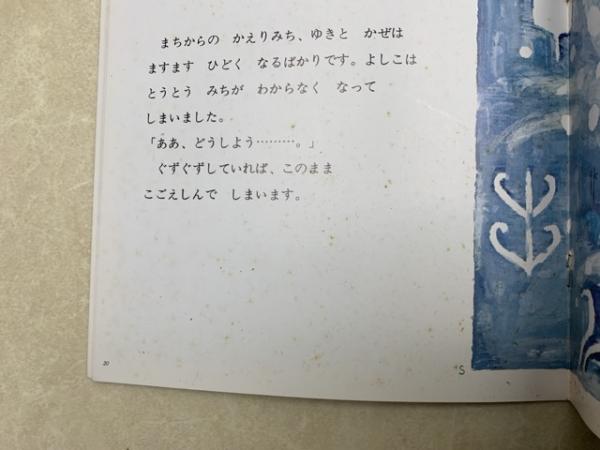 まちからの かえりみち、ゆきと かぜは
ますます ひどく なるばかりです。よしこは
とうとう みちが わからなく なって
しまいました。
「ああ、どうしよう………。」
ぐずぐずしていれば、このまま
こごえしんで しまいます。
20
S